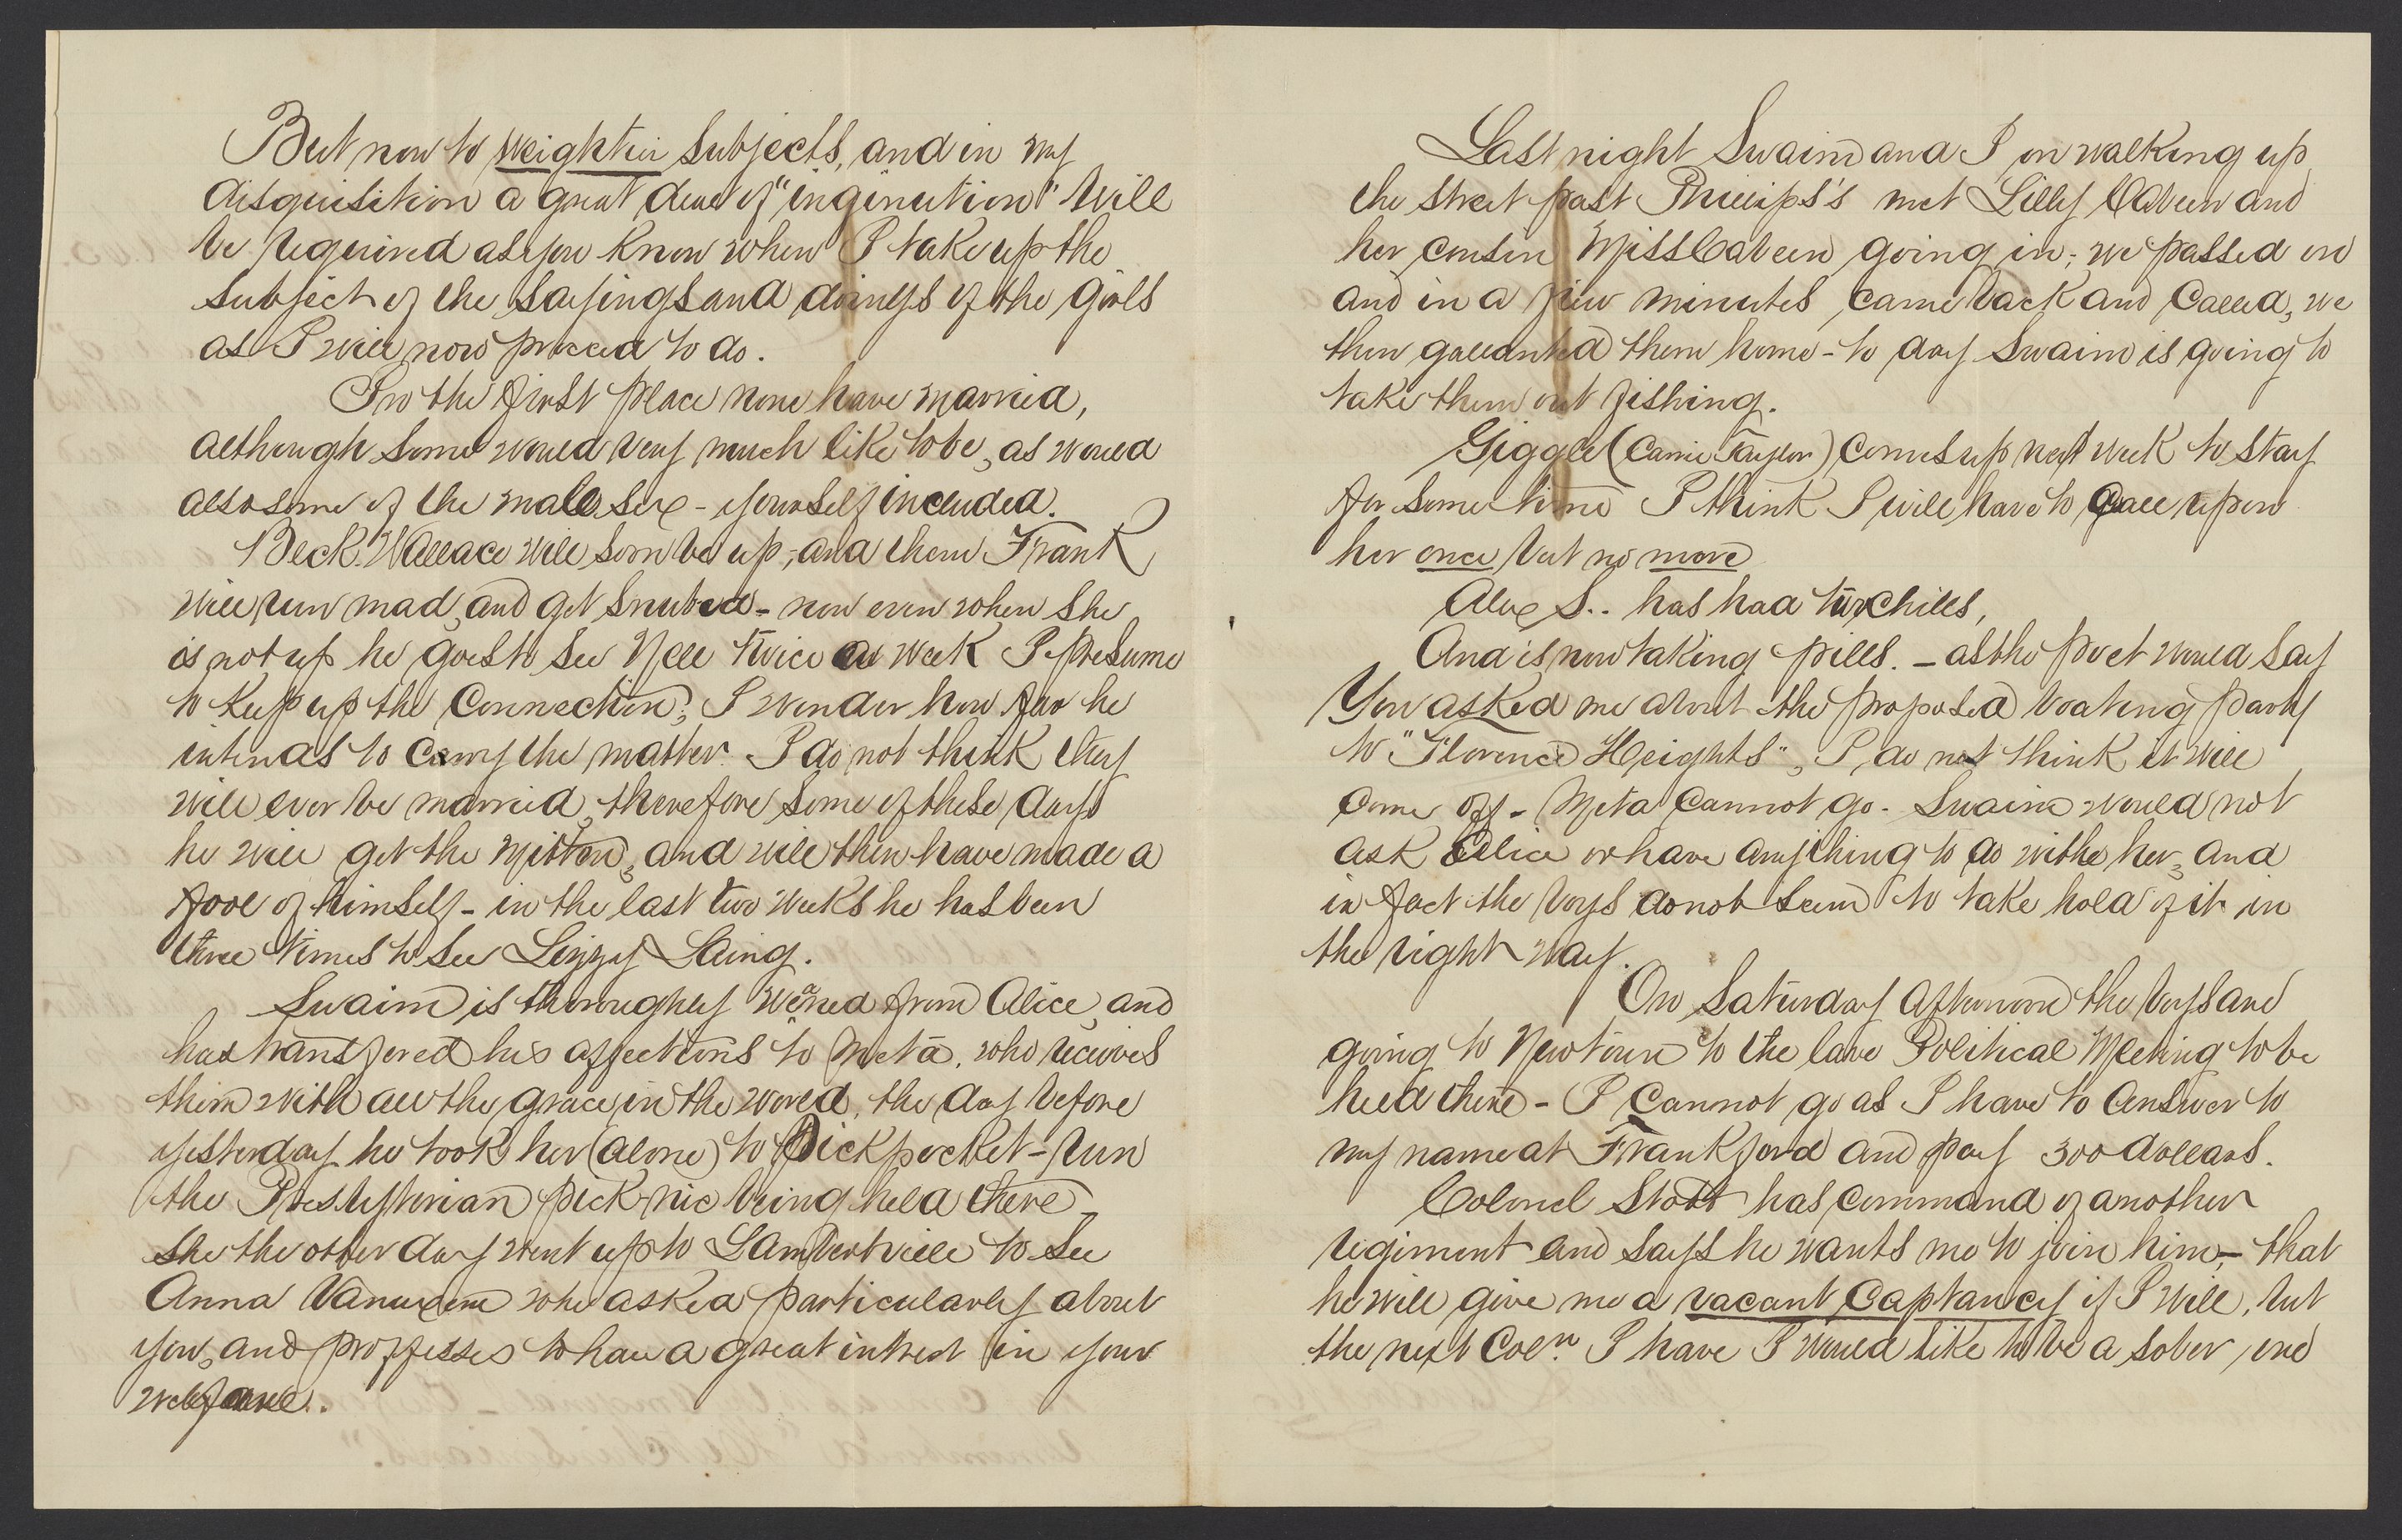 But now to weightier subjects, and in my
disquisition a great deal of "inginution" will
be required as you know when I take up the
subject of the sayings and doings of the girls
as I will now proceed to do.
In the first place none have married,
although some would very much like to be, as would
also some of the male sex - yourself included.
Beck Wallace will soon be up, and then Frank
will run mad, and get snubed - now even when she
is not up he goes to see Nell twice a week I presume
to keep up the connection; I wonder how far he
intends to carry the matter. I do not think they
will ever be married, therefore some of these days
he will get the mitten, and will then have made a
fool of himself - in the last two weeks he has been
three times to see Lizzy Laing.
Swaim is thoroughly weaned from Alice, and
has transfered his affections to Meta, who receives
him with all the grace in the world, the day before
yesterday he took her (alone) to Pickpocket-run
the Presbyterian pick-nic being held there -
she the other day went up to Lambertville to see
Anna Vanuxem who asked particularly about
you, and proffesses to have a great intrest in your
welfare.
Last night Swaim and I on walking up
the street past Phillips's met Lilly Cabeen and
her cousin Miss Cabeen going in; we passed on
and in a few minutes came back and called, we
then gallanted them home - to day Swaim is going to
take them out fishing.
Giggle (Carrie Taylor) comes up next week to stay
for some time I think I will have to call upon
her once but no more
Alex S.. has had two chills,
And is now taking pills. - as the poet would say
You asked me about the proposed boating party
to "Florence Heights", I do not think it will
come off - Meta cannot go - Swaim would not
ask Alice or have anything to do withe her, and
in fact the boys do not seem to take hold of it in
the right way.
On Saturday afternoon the boys are
going to Newtown to the lare Political Meeting to be
held there - I cannot go as I have to answer to
my name at Frankford and pay 300 dollars.
Colonel Stott has command of another
regiment and says he wants me to join him, - that
he will give me a vacant Captancy if I will, but
the next Coln. I have I would like to be a sober one